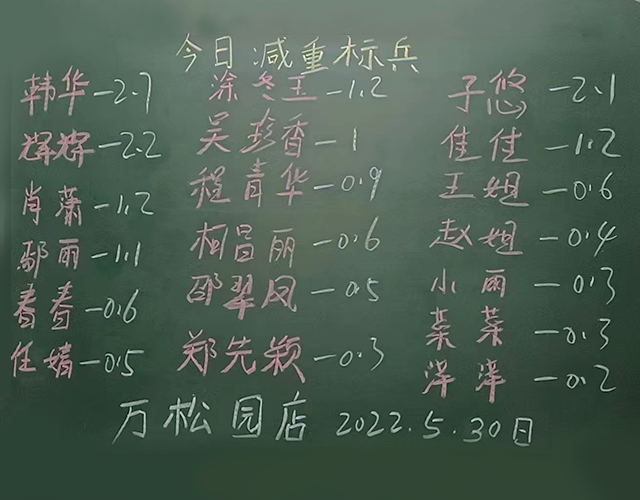 今日减重标兵
韩华-2.7
辉辉-2.2
肖萧-1.2
鄢丽-1.1
春春-0.6
任婧-0.5
涂冬玉-1.2
吴彭香-1
程青华-0.9
柯昌丽-0.6
邵翠凤-0.5
郑先颖-0.3
子悠-2.1
佳佳-1.2
王姐-0.6
赵姐-0.4
小雨-0.3
菜菜-0.3
洋洋-0.2
万松园店 2022.5.30日